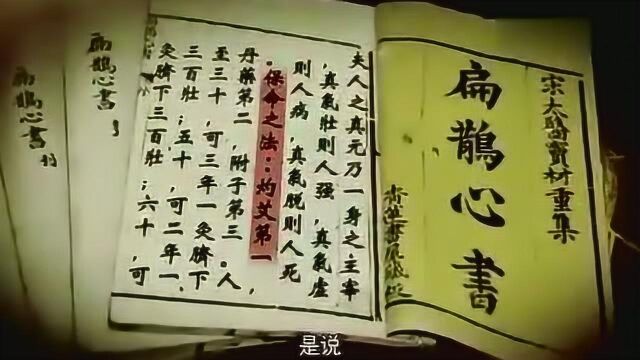 宋太醫竇材重集
扁鵲心書
夫人之真元乃一身之主宰
，真氣壯則人强，真氣虛
則人病，真氣脱則人死
。保命之法：灼艾第一
丹藥第二，附子第三。人
至三十，可三年一灸臍下
三百壯；五十，可二年一
灸臍下三百壯；六十，可
扁鵲心書
扁鵲心書
是说